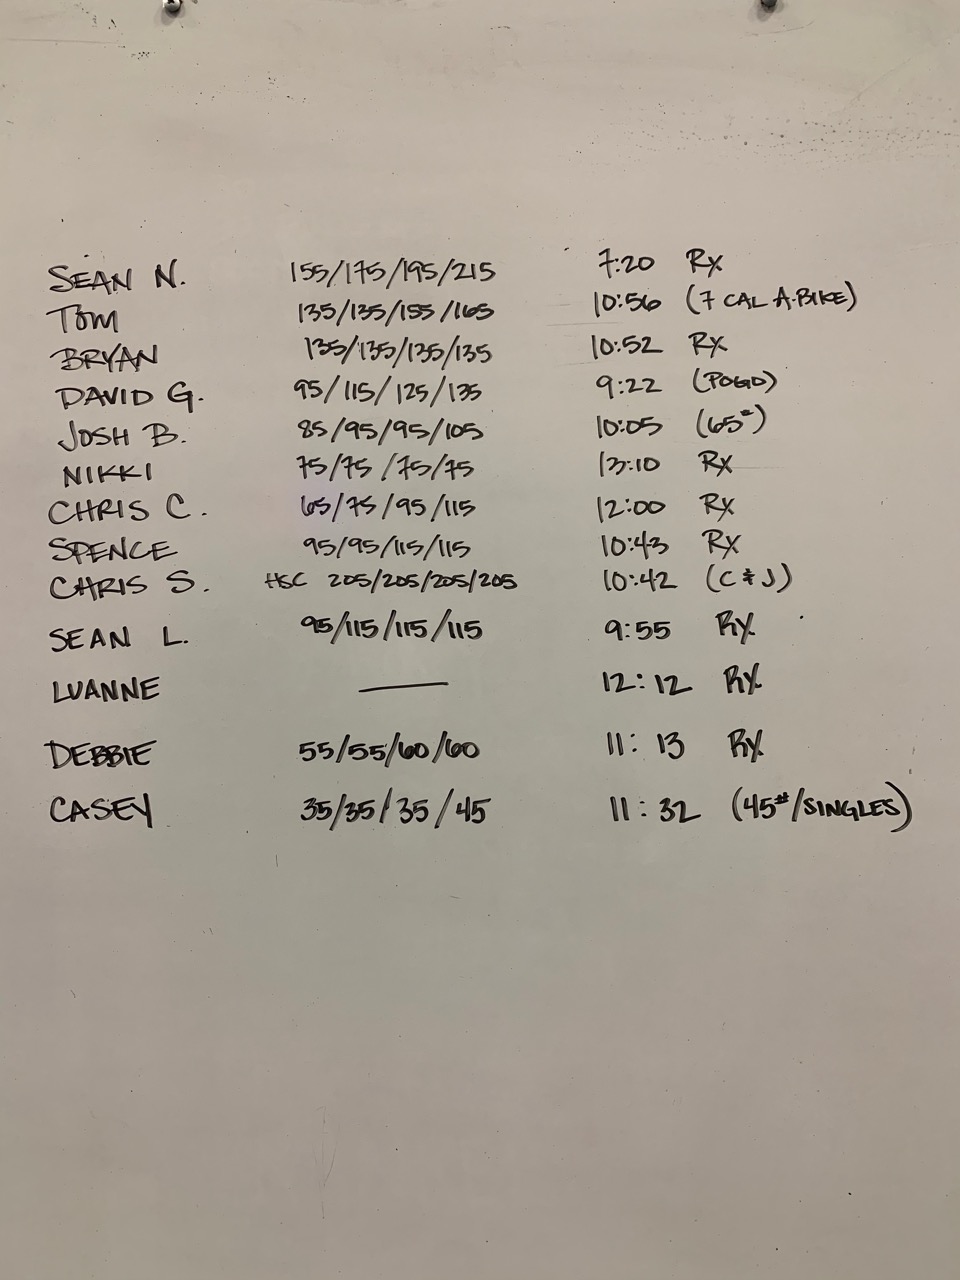 SEAN N. 155/175/195/215 7:20 Rx
TOM 135/135/155/165 10:56 (7 CAL A.BIKE)
BRYAN 135/135/135/135 10:52 Rx
DAVID G. 95/115/125/135 9:22 (POGO)
JOSH B. 85/95/95/105 10:05 (65#)
NIKKI 75/75/75/75 13:10 Rx
CHRIS C. 65/75/95/115 12:00 Rx
SPENCE 95/95/115/115 10:43 Rx
CHRIS S. HSC 205/205/205/205 10:42 (C & J)
SEAN L. 95/115/115/115 9:55 Rx
LUANNE — 12:12 Rx
DEBBIE 55/55/60/60 11:13 Rx
CASEY 35/35/35/45 11:32 (45#/SINGLES)